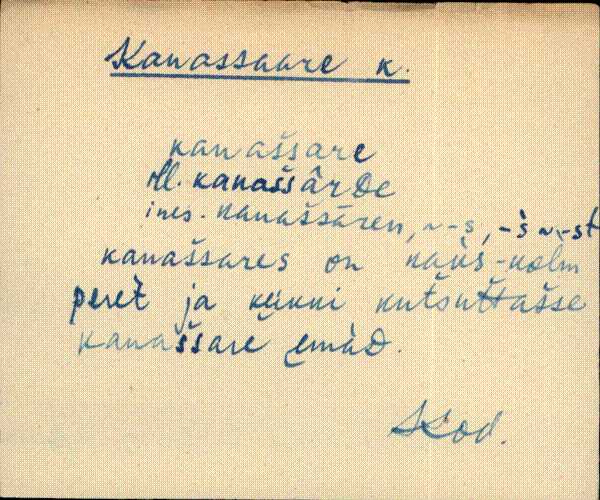 Kanassaare k.
kanaššare
ill. kanaššârDe
ines. kanaššāren, ~ -s, -s̀ ~ -st
kanaššares on kaks-kolm
peret ja kükki kutsuttašse
kanaššare emàD.
Kod.